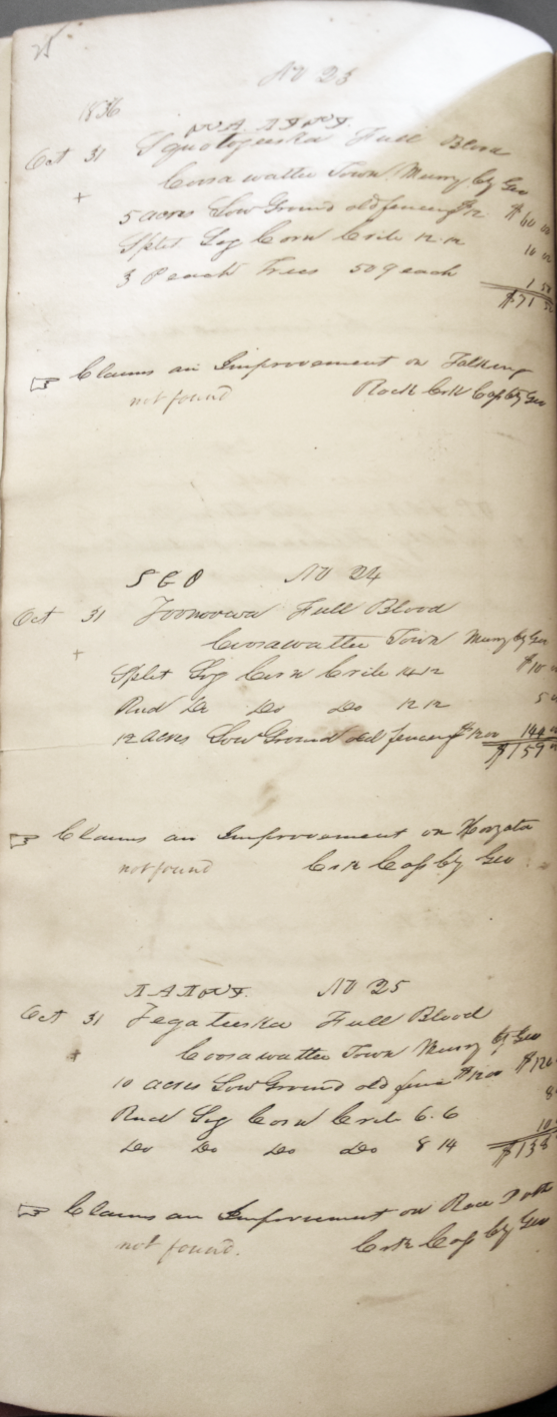 25
No 23
1836
Oct 31 Full Blood
Coosawattee Town Murry Cty Geo
+
5 acres Low Ground old fencing $12 $60 00
Split Log Corn Crib 12.12 10 00
3 Peach Trees 50¢ each 1 50
$71 50
☞ Claims an Improvement on Talking
not found Rock Crk Cass Cty Geo
No 24
Oct 31 Toonoowa Full Blood
Coosawattee Town Murry Cty Geo
+
Split Log Corn Crib 14 12 $10
Rud Do Do Do 12 12 5
12 acres Low Ground old fencing $12 00 144 00
$159
☞ Claims an Improvement on
not found Crk Cass Cty Geo
No 25
Oct 31 Tegateeska Full Blood
Coosawattee Town Murry Cty Geo
+
10 acres Low Ground old fence $12 00 $120
Rud Log Corn Crib 6.6 8
Do Do Do Do 8 14 10
$138
☞ Claims an Improvement on
not found. Crk Cass Cty Geo